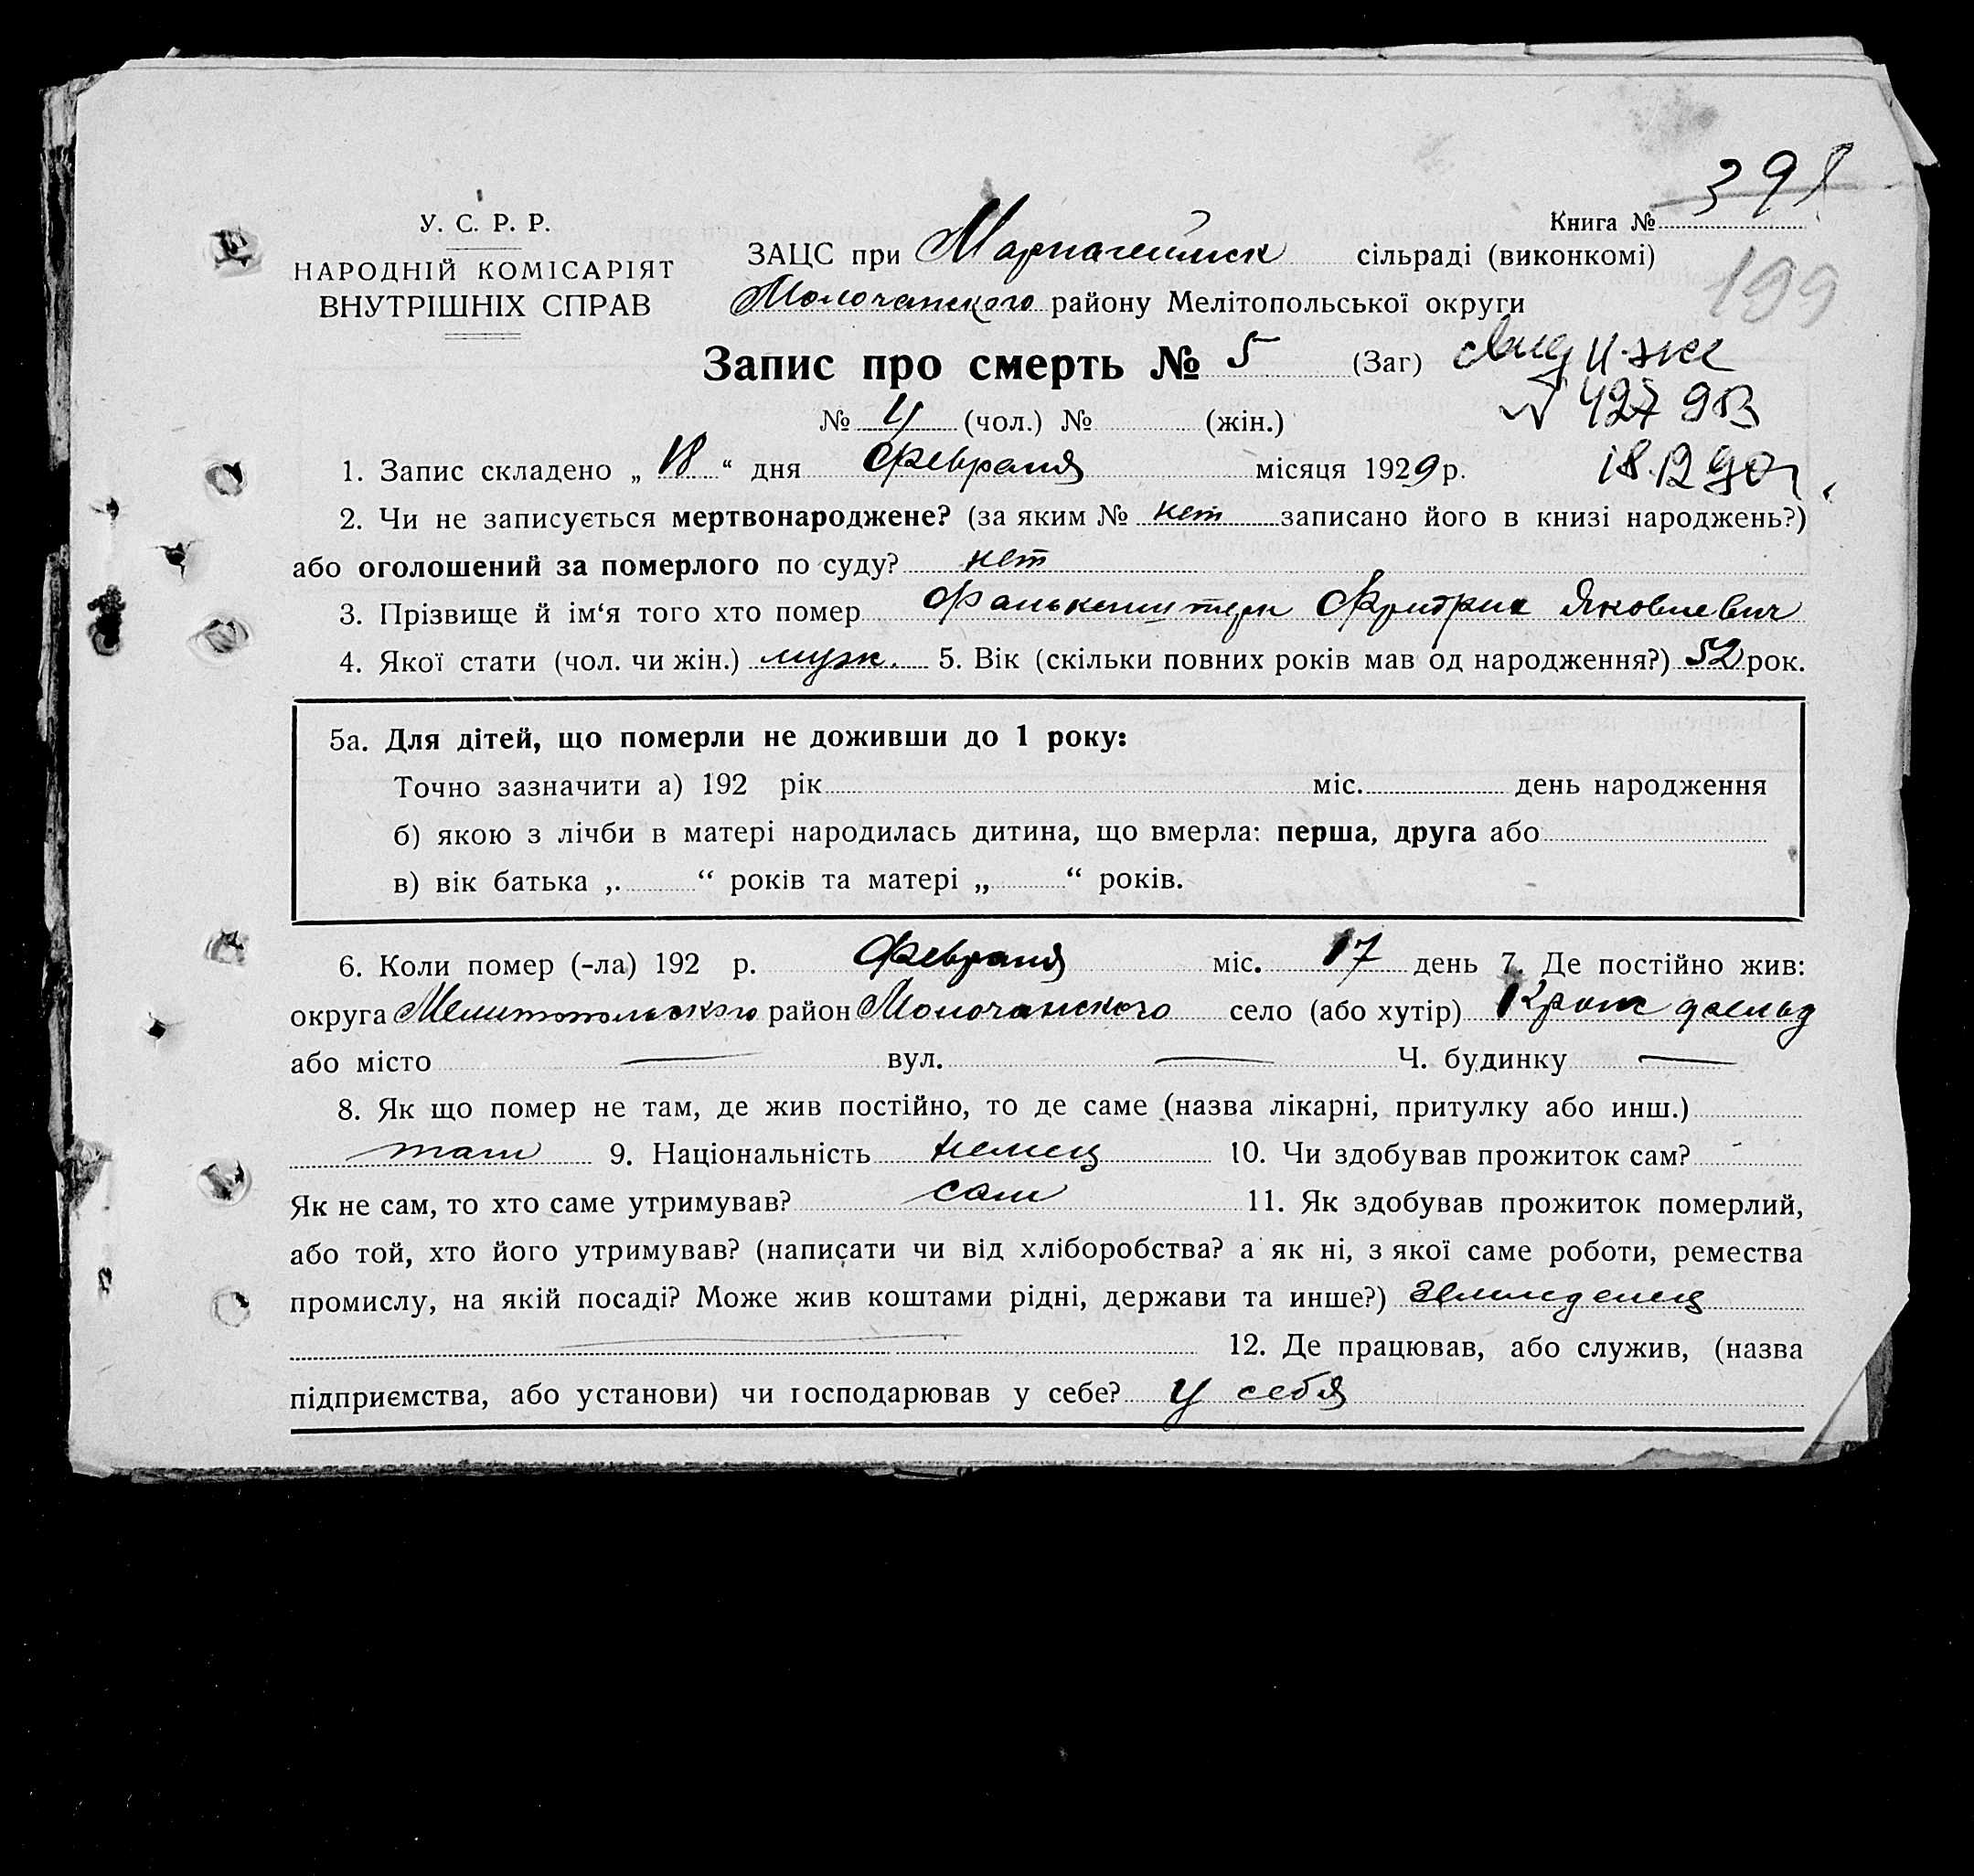 398
У. С. Р. Р.
НАРОДНІЙ КОМІСАРІЯТ
ВНУТРІШНІХ СПРАВ
Книга №
199
ЗАЦС при сільраді (виконкомі)
Молочанского району Мелітопольської округи
Запис про смерть № 5 (Заг)
№ 4 (чол.) № (жін.)
18.12 90г.
1. Запис складено „ 18 “ дня Февраля місяця 1929 р.
2. Чи не записується мертвонароджене? (за яким № нет записано його в книзі народжень?)
або оголошений за померлого по суду? нет
3. Прізвище й ім‘я того хто помер Фалькенштерн Фридрих Яковлевич
4. Якої стати (чол. чи жін.) муж. 5. Вік (скільки повних років мав од народження?) 52 рок.
5а. Для дітей, що померли не доживши до 1 року:
Точно зазначити а) 192 рік міс. день народження
б) якою з лічби в матері народилась дитина, що вмерла: перша, друга або
в) вік батька „ “ років та матері „ “ років.
6. Коли помер (-ла) 192 р. Февраля міс. 17 день 7. Де постійно жив:
округа Мелитопольского район Молочанского село (або хутір) Кронсфельд
або місто — вул. — Ч. будинку —
8. Як що помер не там, де жив постійно, то де саме (назва лікарні, притулку або инш.)
там 9. Національність немец 10. Чи здобував прожиток сам?
Як не сам, то хто саме утримував? сам 11. Як здобував прожиток померлий,
або той, хто його утримував? (написати чи від хліборобства? а як ні, з якої саме роботи, ремества
промислу, на якій посаді? Може жив коштами рідні, держави та инше?) земледелец
12. Де працював, або служив, (назва
підприємства, або установи) чи господарював у себе? у себя